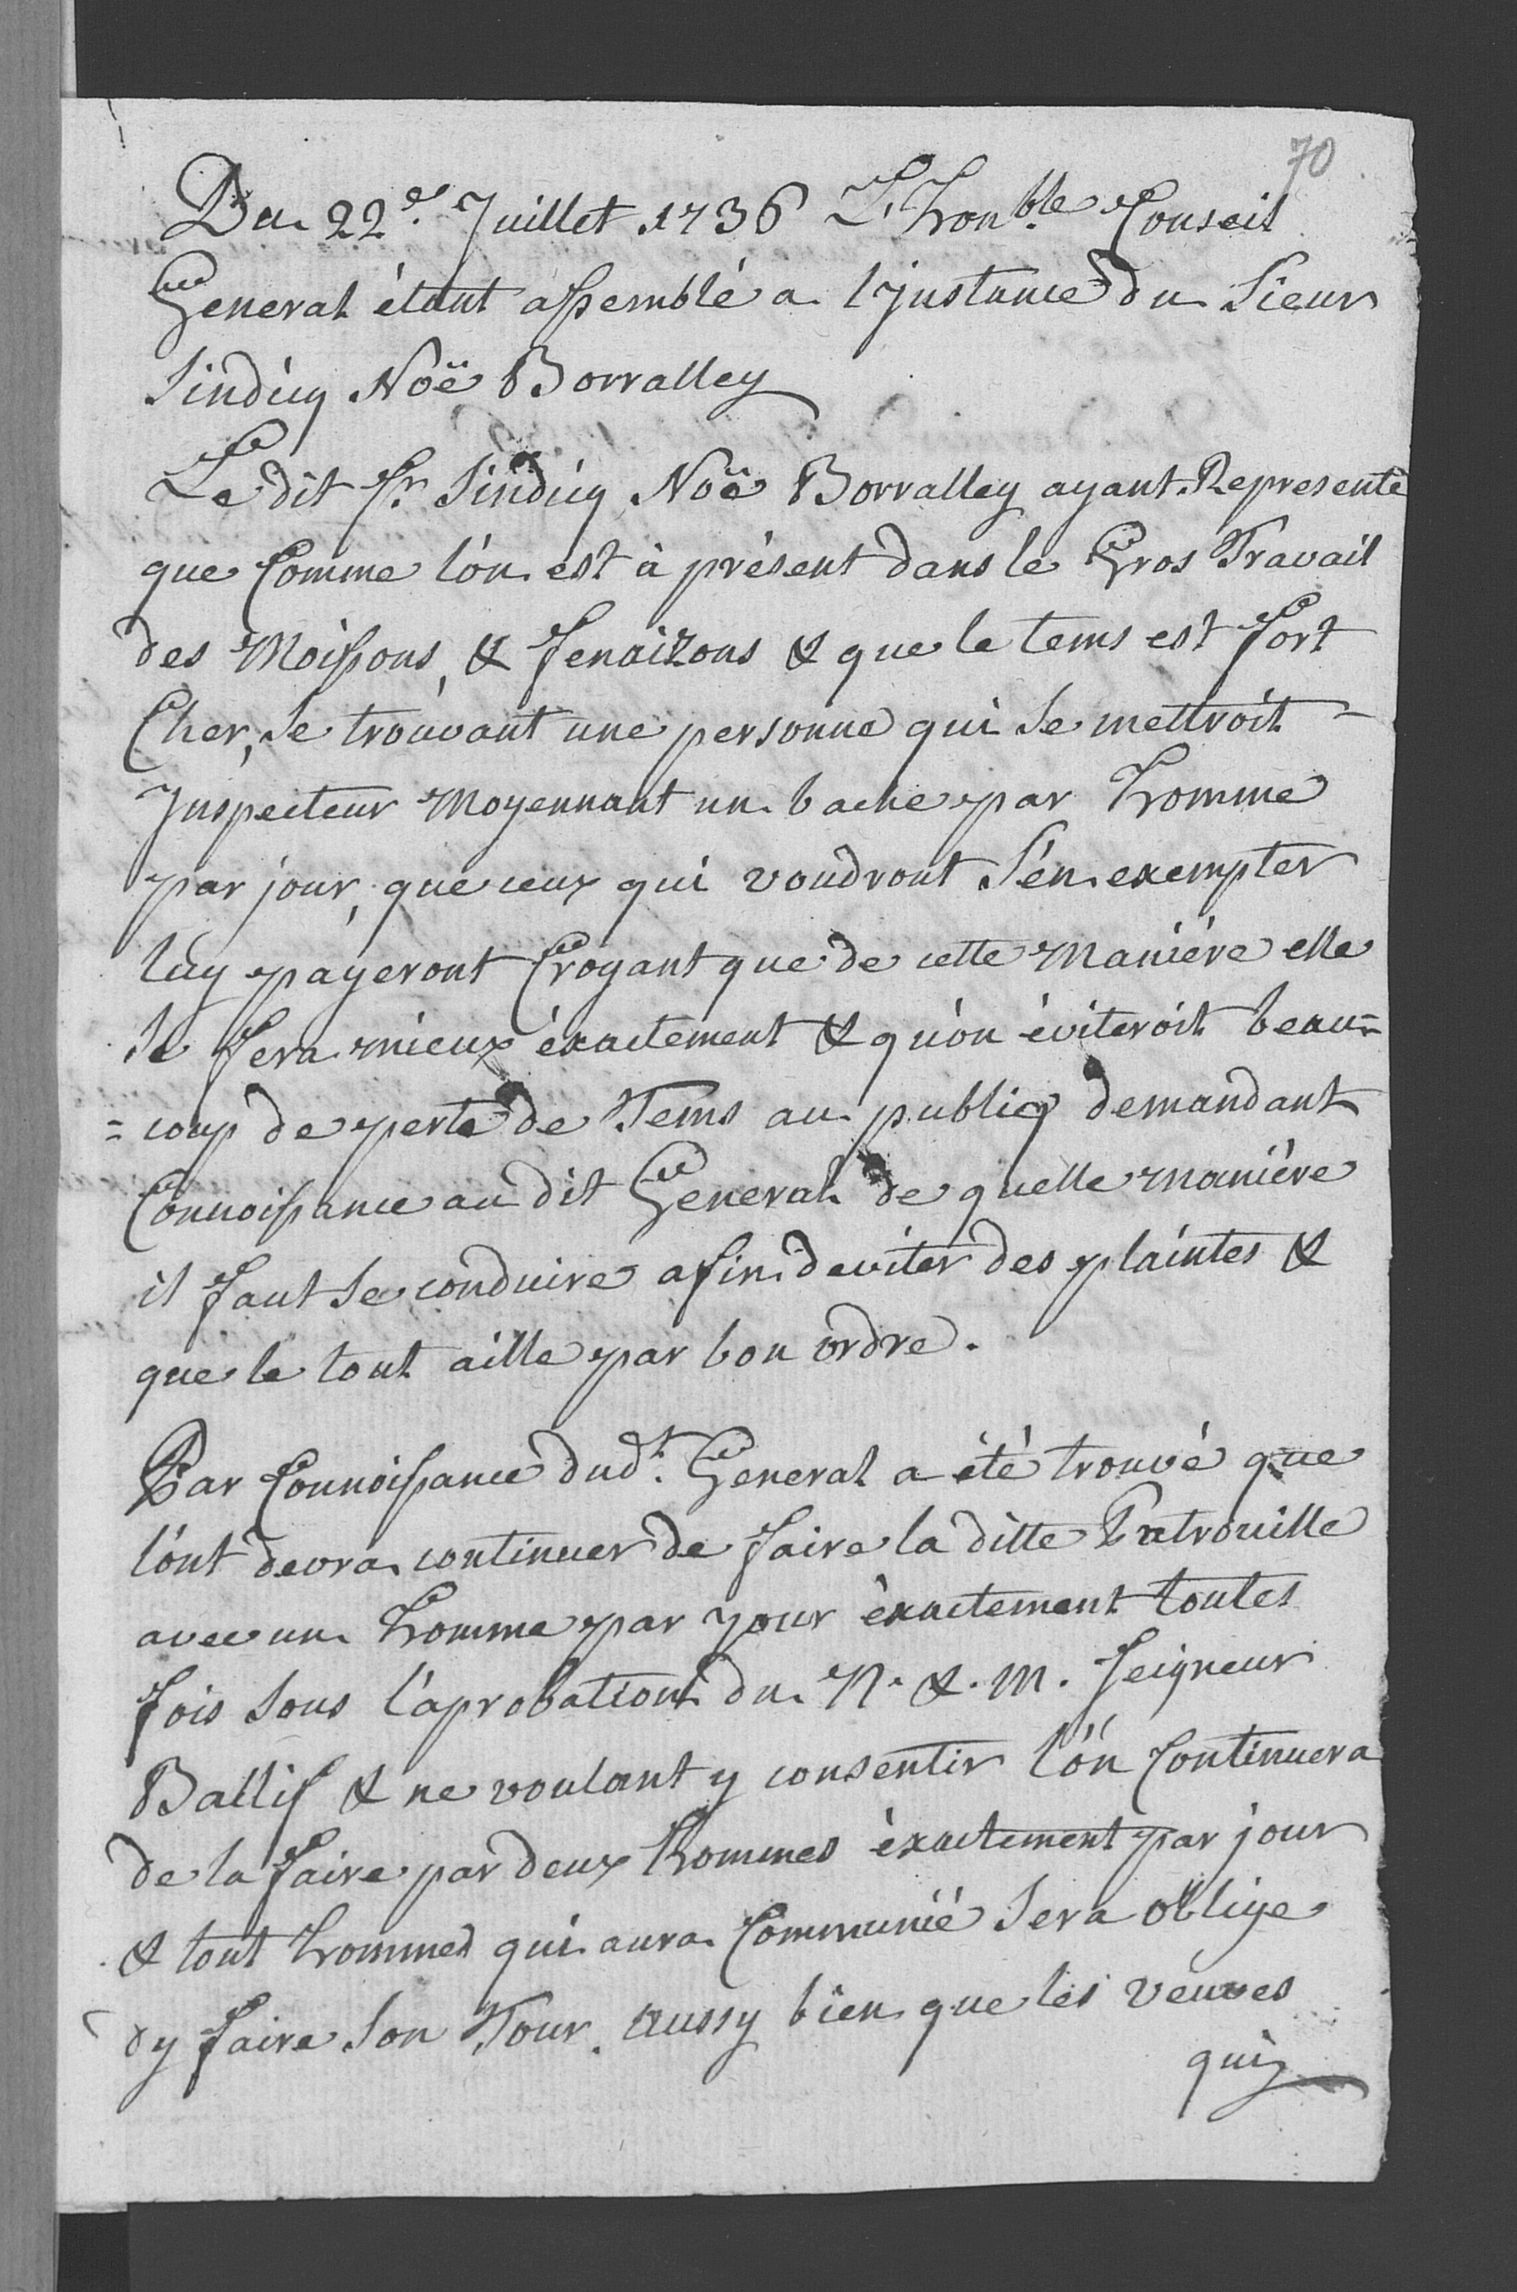 70
Du 22.e Juillet 1736 L'honble. Conseil
General étant assemblé a l'jnstance du Sieur
Sindicq Noë Borralley
Le dit Sr. Sindicq Noë Borralley ayant Representé
que Comme l'on est à présent dans le Gros Travail
des Moissons, & fenaizons & que le tems est fort
Cher, Se trouvant une personne qui Se mettroit
Jnspecteur Moyennant un bache par homme
par jour, que ceux qui voudront S'én exempter
luy payeront Croyant que de cette Maniére elle
Se fera mieux éxactement & qu'on éviteroit beau=
=coup de perte de Tems au publicq demandant
Connoissance au dit General de quelle maniére
il faut Se conduire afin deviter des plaintes &
que le tout aille par bon ordre.
Par Connoissance dudt. General a été trouvé que
l'ont devra continuer de faire la ditte Patrouille
avec un homme par jour éxactement toutes
fois Sous l'aprobation du N. & M. Seigneur
Ballif & ne voulant y consentir l'ón Continuera
de la faire par deux hommes éxactement par jour
& tout hommes qui aura Communié Sera oblige
dy faire Son Tour. Aussy bien que les veuves
qui